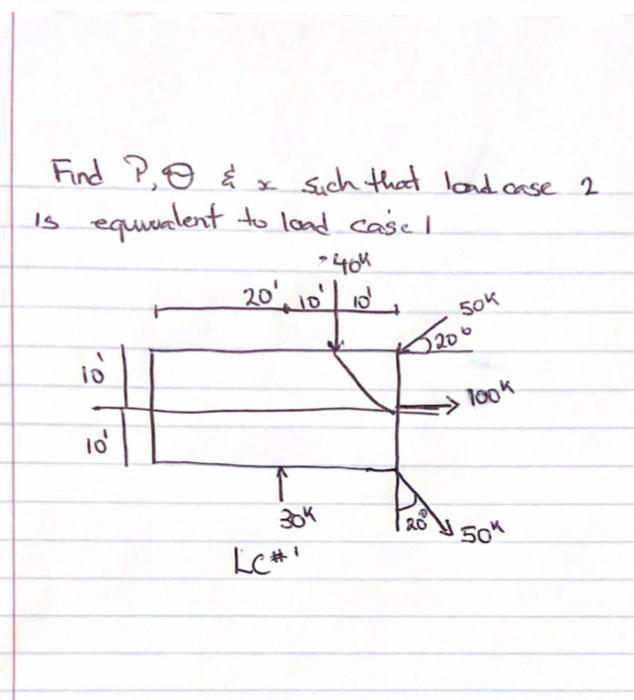 Find P, Θ & x such that load case 2
is equivalent to load case 1
40k
20' 10' 10'
50k
20°
10'
100k
10'
30k
20°
50k
LC#1